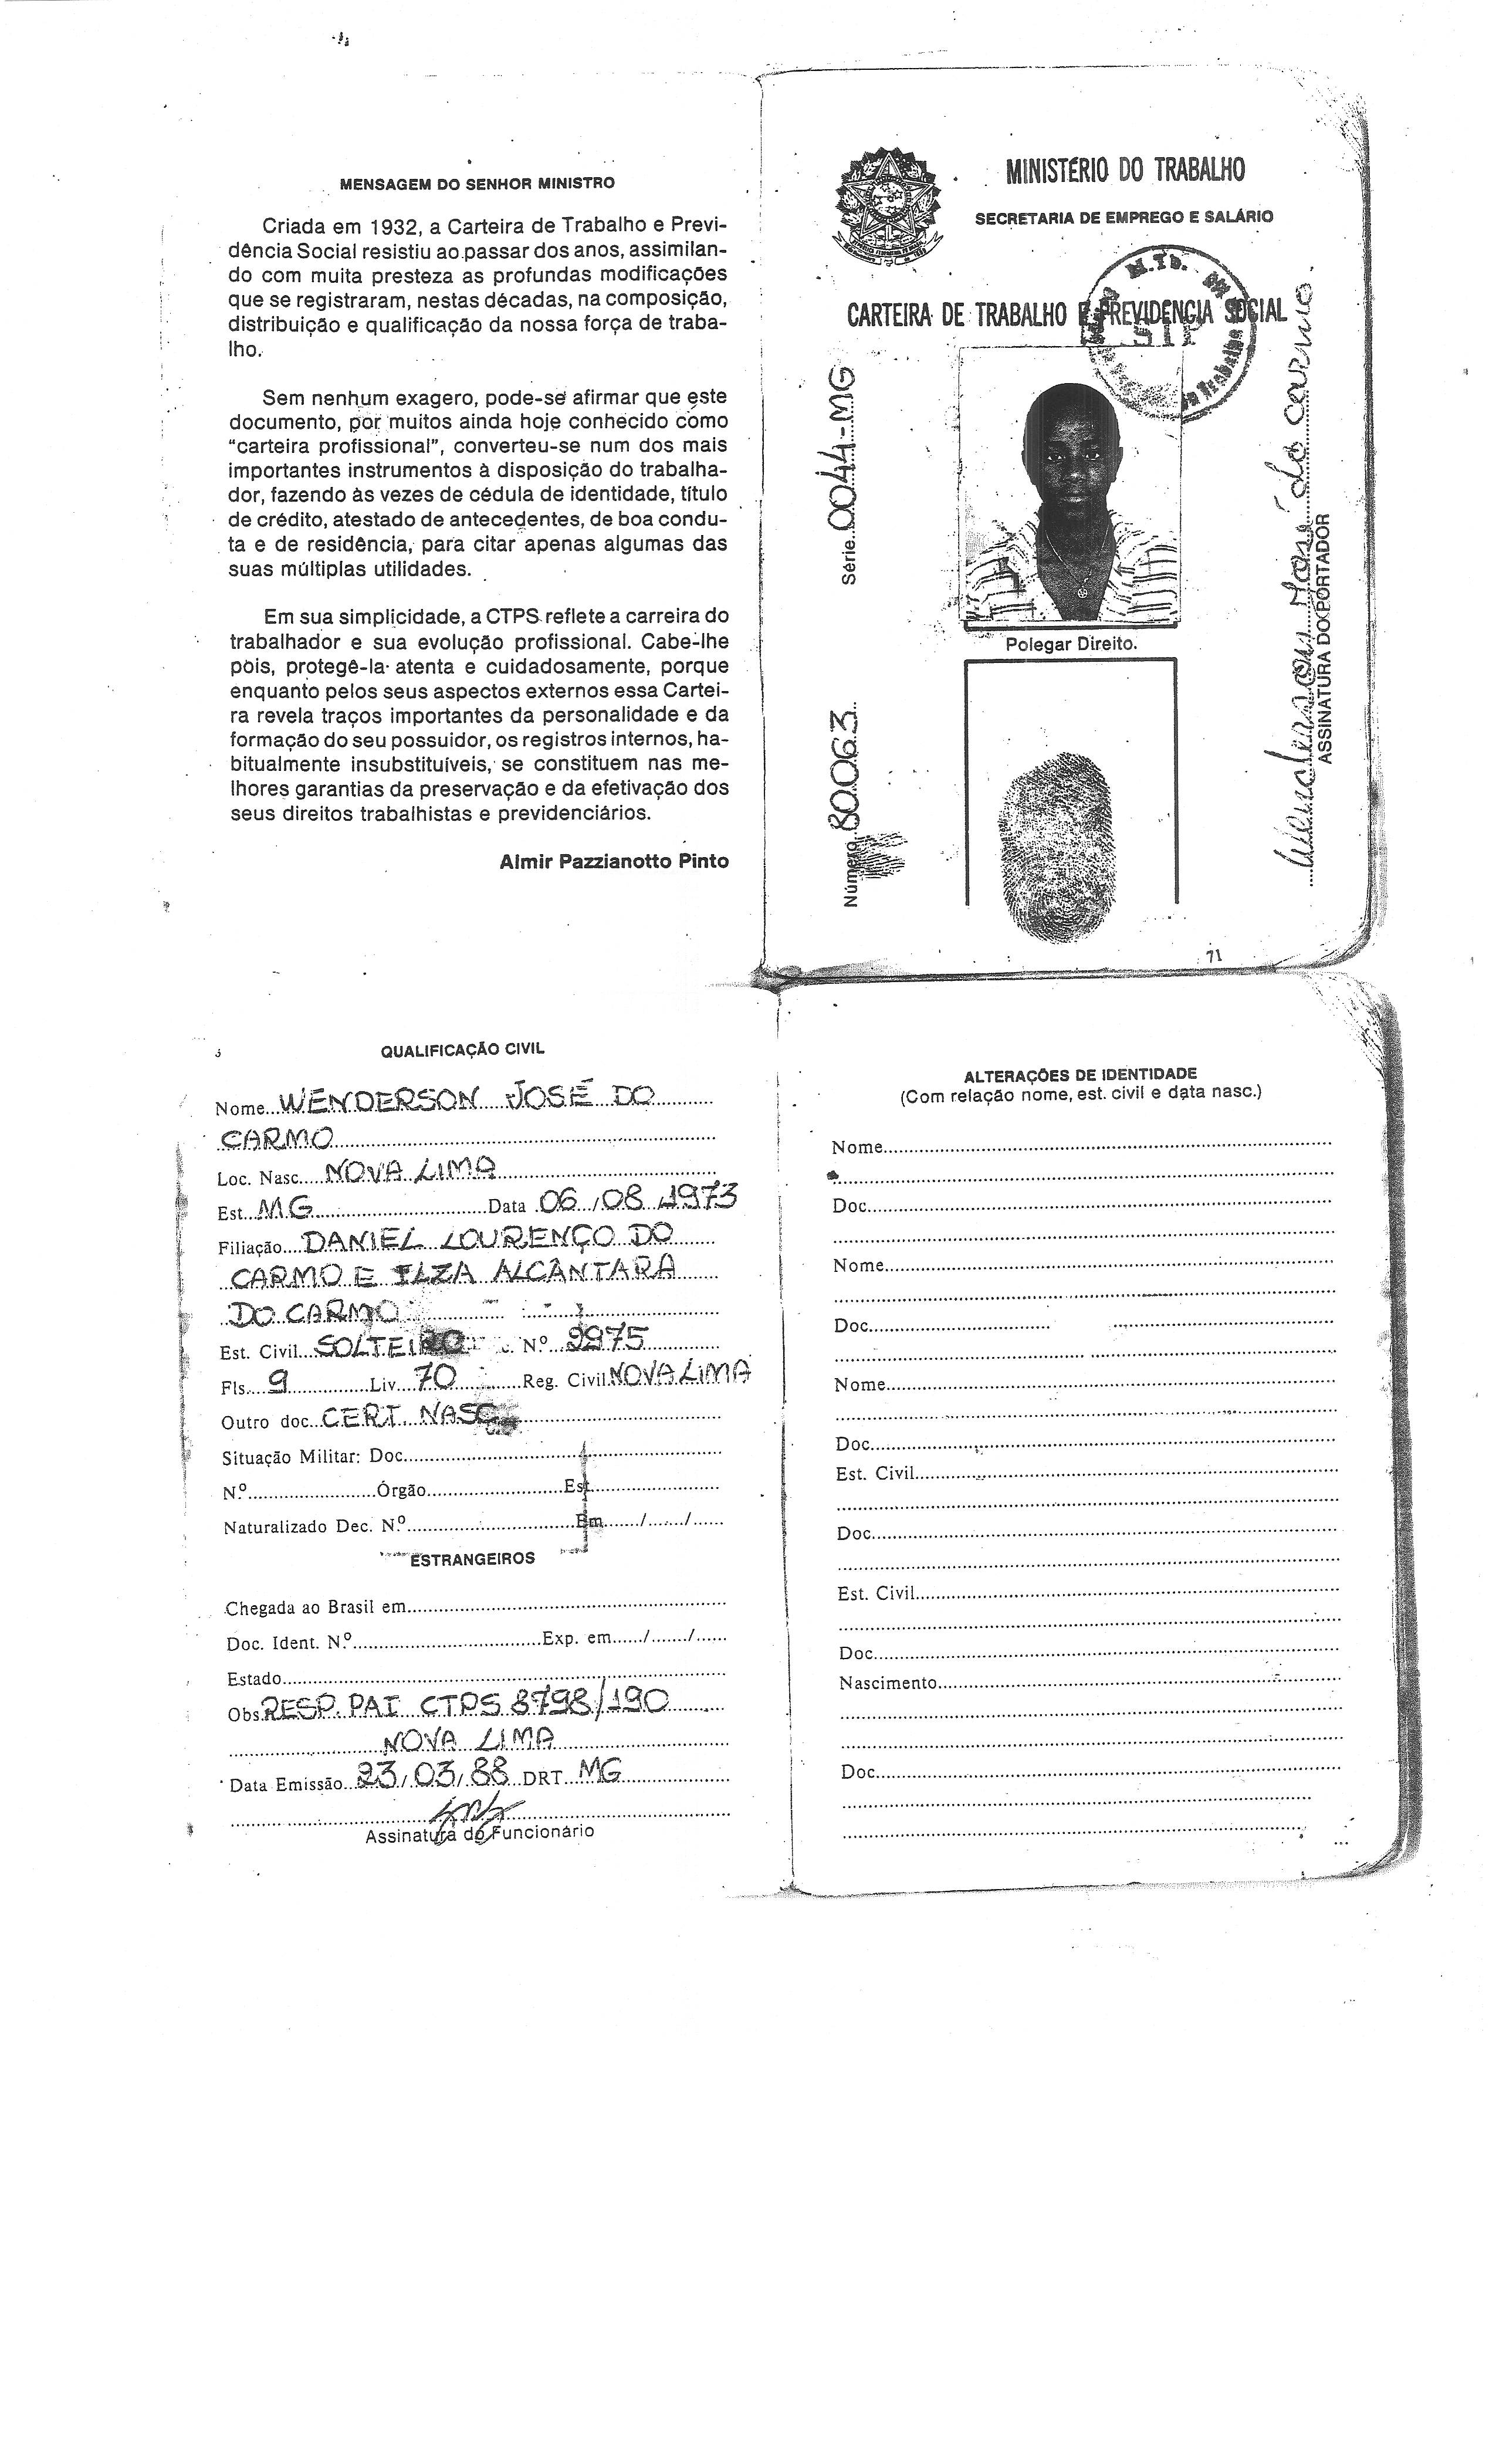 MENSAGEM DO SENHOR MINISTRO
Criada em 1932, a Carteira de Trabalho e Previ-
dência Social resistiu ao passar dos anos, assimilan-
do com muita presteza as profundas modificações
que se registraram, nestas décadas, na composição,
distribuição e qualificação da nossa força de traba-
lho.
Sem nenhum exagero, pode-se afirmar que este
documento, por muitos ainda hoje conhecido como
“carteira profissional”, converteu-se num dos mais
importantes instrumentos à disposição do trabalha-
dor, fazendo às vezes de cédula de identidade, título
de crédito, atestado de antecedentes, de boa condu-
ta e de residência, para citar apenas algumas das
suas múltiplas utilidades.
Em sua simplicidade, a CTPS reflete a carreira do
trabalhador e sua evolução profissional. Cabe-lhe
pois, protegê-la atenta e cuidadosamente, porque
enquanto pelos seus aspectos externos essa Cartei-
ra revela traços importantes da personalidade e da
formação do seu possuidor, os registros internos, ha-
bitualmente insubstituíveis, se constituem nas me-
lhores garantias da preservação e da efetivação dos
seus direitos trabalhistas e previdenciários.
Almir Pazzianotto Pinto
MINISTÉRIO DO TRABALHO
SECRETARIA DE EMPREGO E SALÁRIO
CARTEIRA DE TRABALHO E PREVIDENCIA SOCIAL
M.Tb.
Trabalho
Número 80063 Série 0044-MG
Polegar Direito.
Wenderson José do Carmo
ASSINATURA DO PORTADOR
71
QUALIFICAÇÃO CIVIL
Nome WENDERSON JOSÉ DO
CARMO
Loc. Nasc. NOVA LIMA
Est. MG Data 06/08/1973
Filiação DANIEL LOURENÇO DO
CARMO E ILZA ALCÂNTARA
DO CARMO
Est. Civil SOLTEIRO N.º 9975
Fls. 9 Liv. 70 Reg. Civil NOVA LIMA
Outro doc. CERT. NASC
Situação Militar: Doc.
N.º Órgão Est.
Naturalizado Dec. N.º Em / /
ESTRANGEIROS
Chegada ao Brasil em
Doc. Ident. N.º Exp. em / /
Estado
Obs. RESP. PAI CTPS 8798/190
NOVA LIMA
Data Emissão 23/03/88 DRT MG
Assinatura do Funcionário
ALTERAÇÕES DE IDENTIDADE
(Com relação nome, est. civil e data nasc.)
Nome
Doc.
Nome
Doc.
Nome
Doc.
Est. Civil
Doc.
Est. Civil
Doc.
Nascimento
Doc.